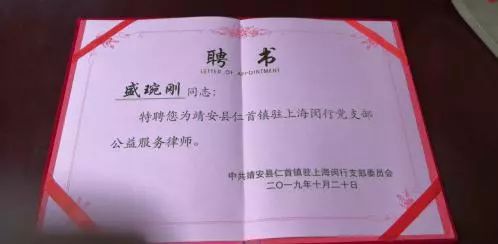 聘书
LETTER OF APPOINTMENT
盛琬刚同志：
特聘您为靖安县仁首镇驻上海闵行党支部
公益服务律师。
中共靖安县仁首镇驻上海闵行支部委员会
二〇一九年十月二十日